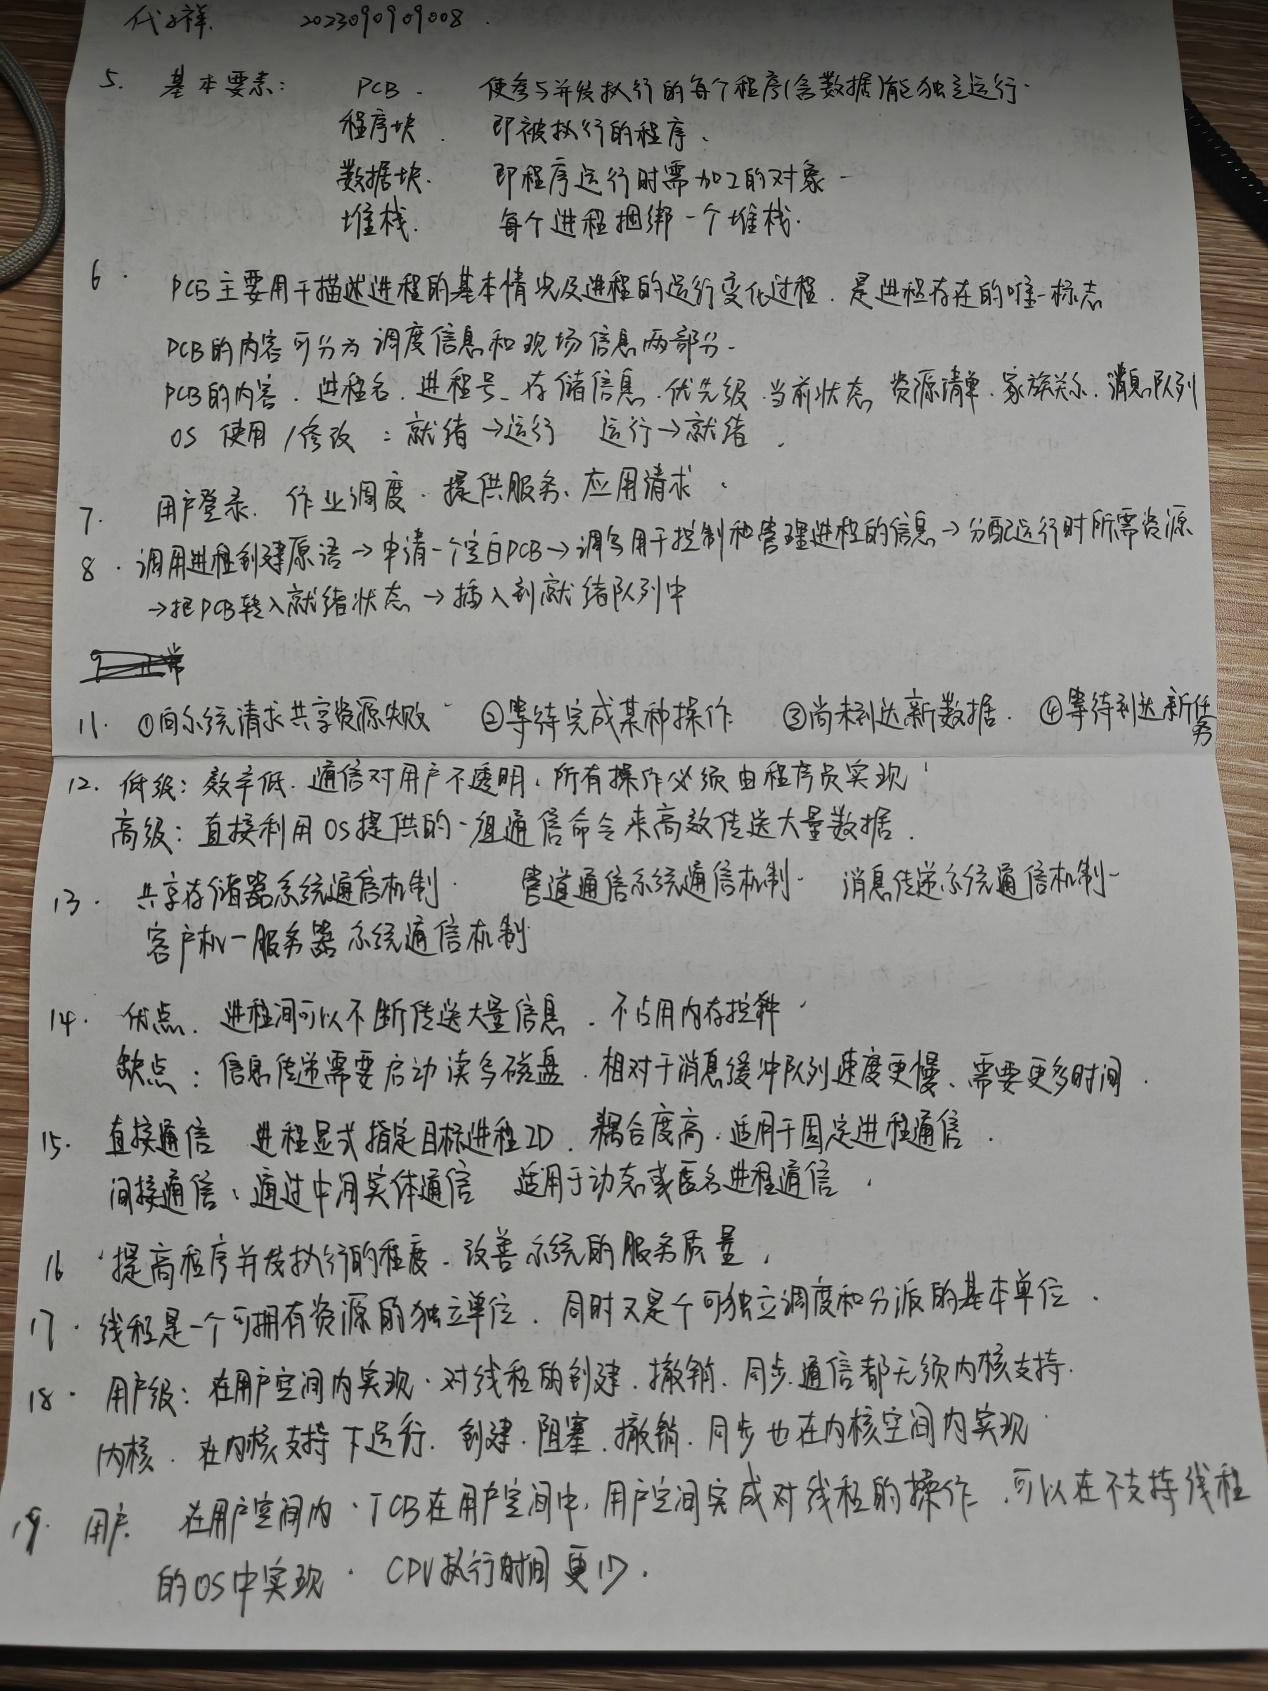 代子祥. 2023090909008.
5. 基本要素: PCB. 使参与并发执行的每个程序(含数据)能独立运行.
程序块. 即被执行的程序.
数据块. 即程序运行时需加工的对象
堆栈. 每个进程捆绑一个堆栈.
6. PCB主要用于描述进程的基本情况及进程的运行变化过程. 是进程存在的唯一标志
PCB的内容可分为调度信息和现场信息两部分.
PCB的内容. 进程名. 进程号. 存储信息. 优先级. 当前状态 资源清单. 家族关系. 消息队列
OS 使用/修改: 就绪→运行 运行→就绪.
7. 用户登录. 作业调度. 提供服务、应用请求.
8. 调用进程创建原语→申请一个空白PCB→调写用于控制和管理进程的信息→分配运行时所需资源
→把PCB转入就绪状态→插入到就绪队列中
11. ①向系统请求共享资源失败 ②等待完成某种操作 ③尚未到达新数据. ④等待到达新任务
12. 低级: 效率低. 通信对用户不透明, 所有操作必须由程序员实现
高级: 直接利用OS提供的一组通信命令来高效传送大量数据.
13. 共享存储器系统通信机制. 管道通信系统通信机制. 消息传递系统通信机制-
客户机-服务器系统通信机制
14. 优点. 进程间可以不断传送大量信息. 不占用内存控件
缺点: 信息传递需要启动读写磁盘. 相对于消息缓冲队列速度更慢、需要更多时间.
15. 直接通信 进程显式指定目标进程ID. 耦合度高. 适用于固定进程通信.
间接通信: 通过中间实体通信 适用于动态或匿名进程通信.
16 提高程序并发执行的程度. 改善系统的服务质量,
17. 线程是一个可拥有资源的独立单位, 同时又是个可独立调度和分派的基本单位.
18. 用户级: 在用户空间内实现. 对线程的创建. 撤销. 同步. 通信都无须内核支持.
内核. 在内核支持下运行. 创建. 阻塞. 撤销. 同步也在内核空间内实现
19. 用户. 在用户空间内. TCB在用户空间中, 用户空间完成对线程的操作. 可以在不支持线程
的OS中实现. CPU执行时间更少.